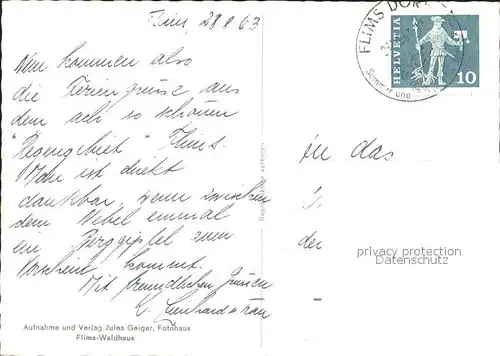 Flims, 28 8 63
Nun kommen also
die Feriengrüsse aus
dem ach so schönen
"Regengebiet" Flims.
Man ist direkt
dankbar, wenn zwischen
dem Nebel einmal
ein Berggipfel zum
Vorschein kommt.
Mit freundlichen Grüssen
Aufnahme und Verlag Jules Geiger, Fotohaus
Flims-Waldhaus
Reproduktion verboten
FLIMS DORF
Sommer und
HELVETIA
10
in das
der
privacy protection
Datenschutz